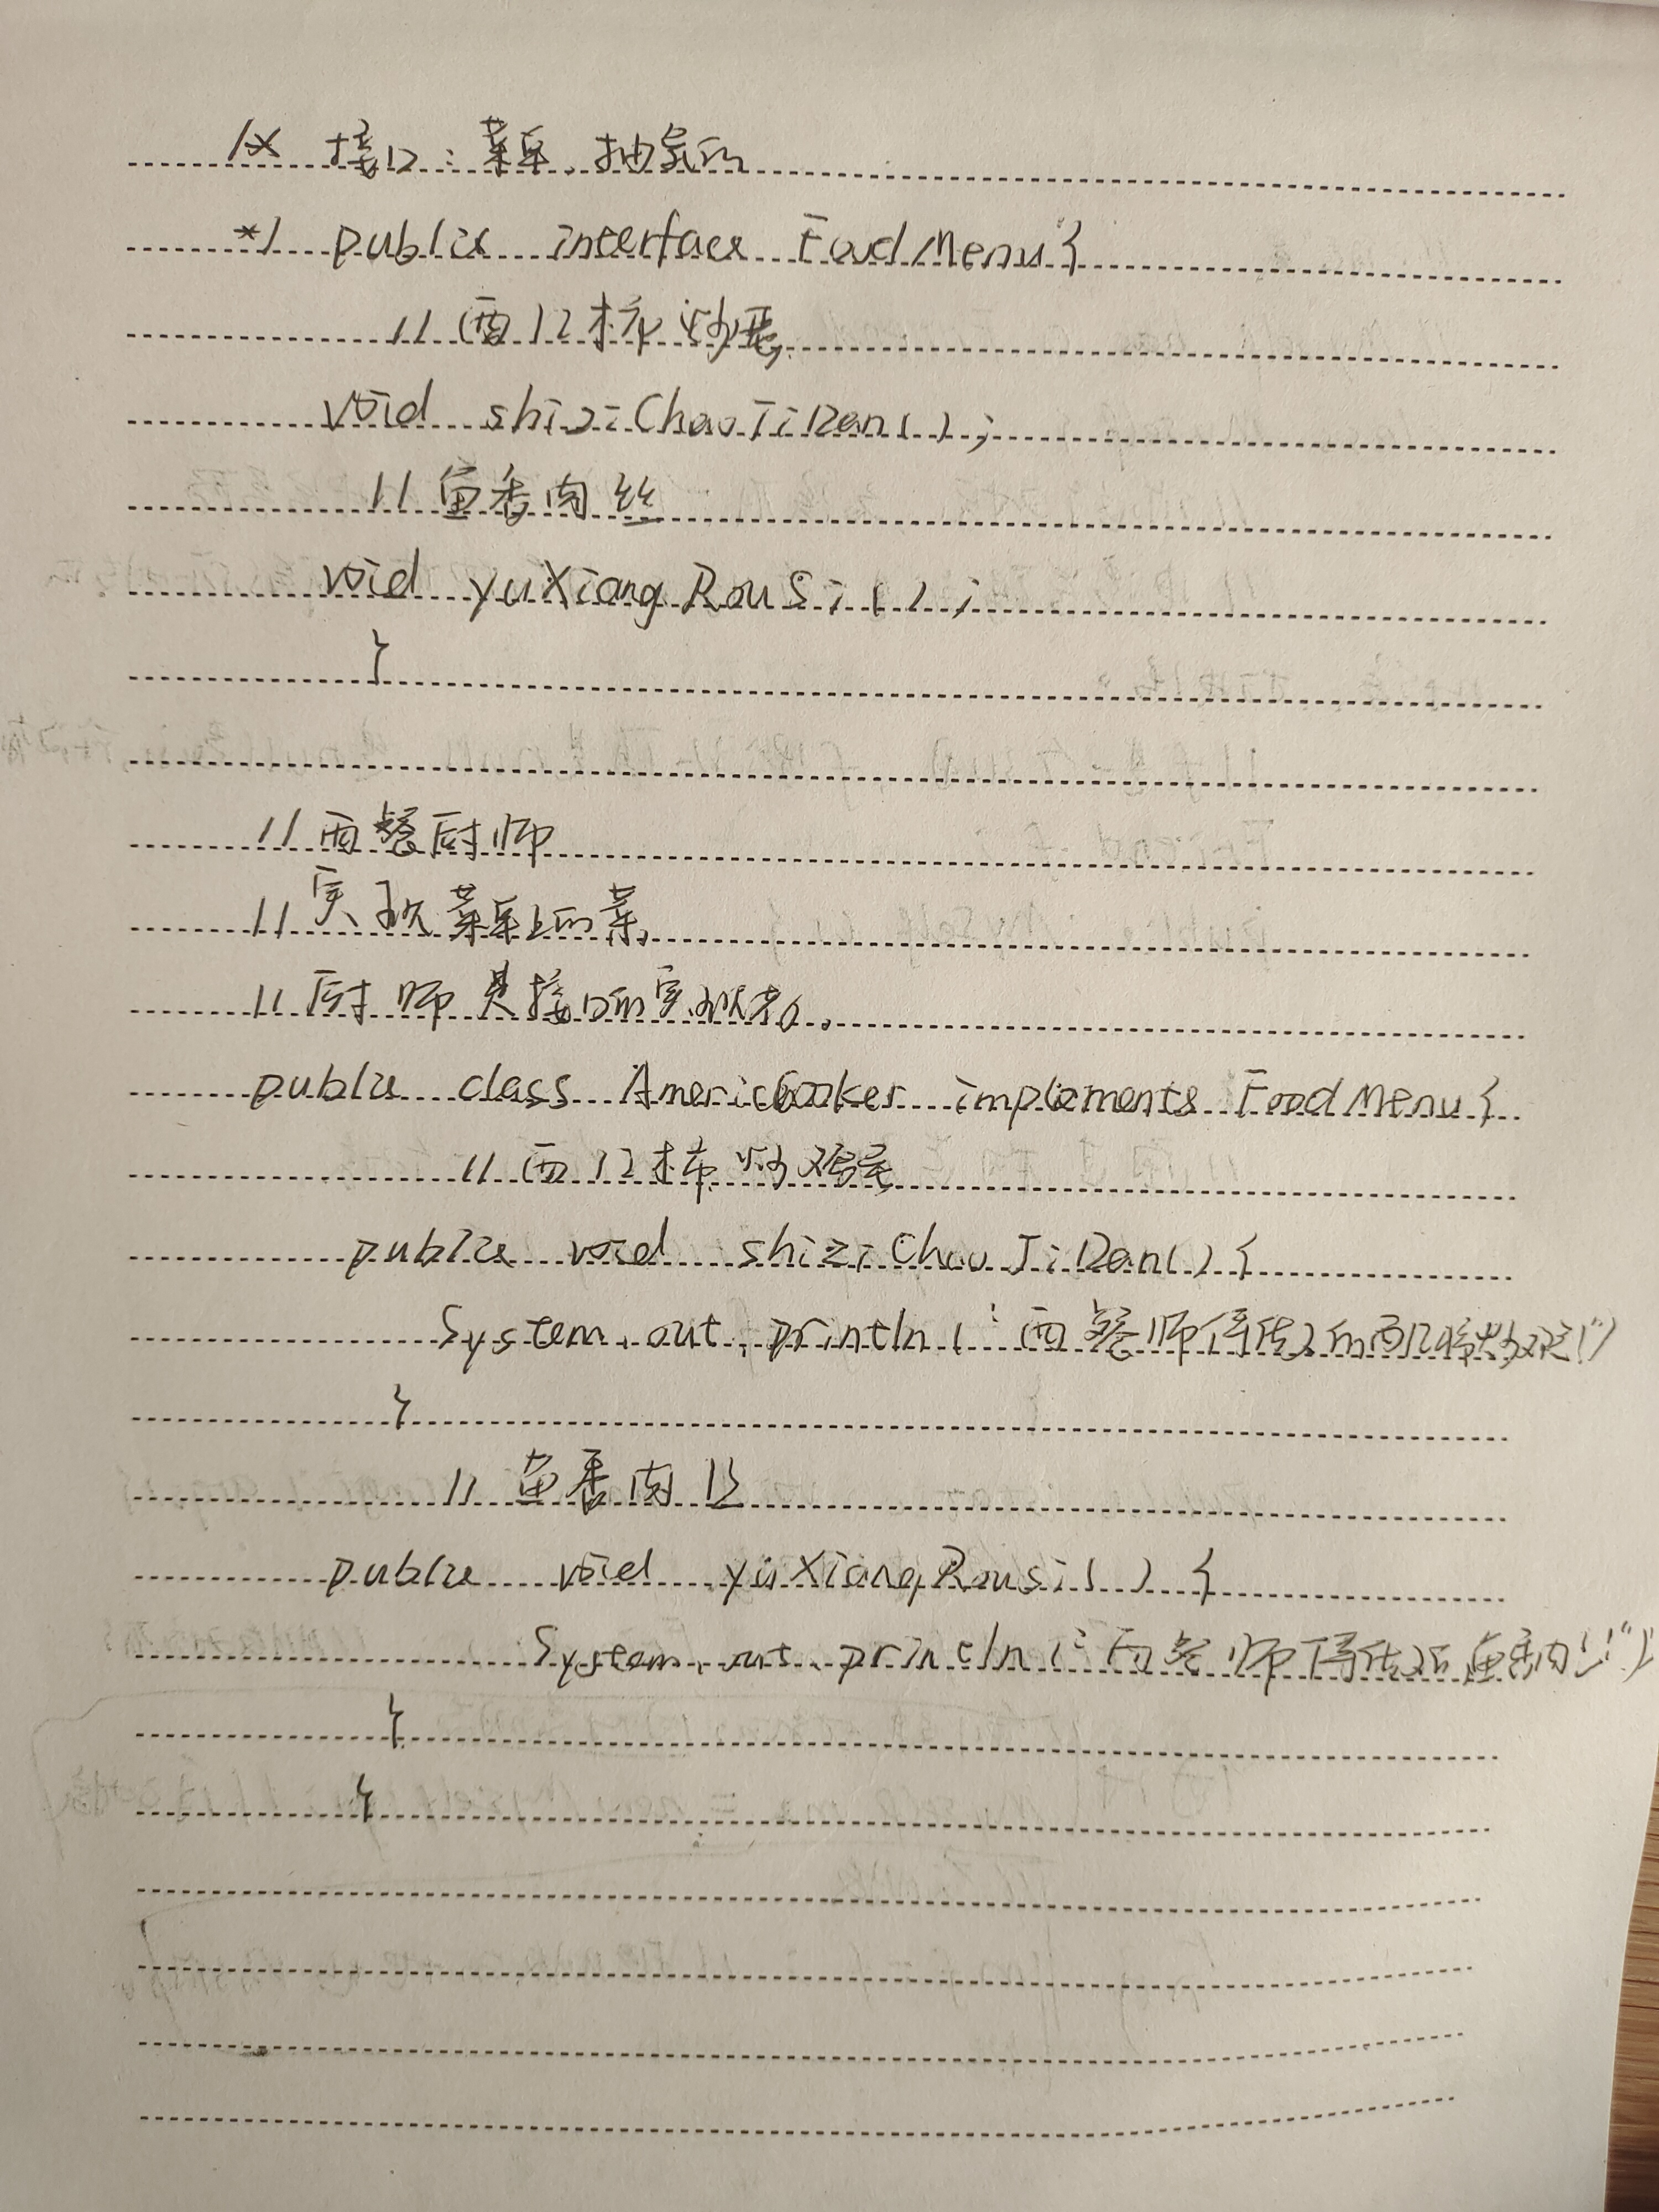 /* 接口:菜单,抽象的
*/ public interface FoodMenu{
// 西红柿炒蛋
void shiziChaoJiDan();
// 鱼香肉丝
void yuXiangRouSi();
}
// 西餐厨师
// 实现菜单上的菜
// 厨师是接口的实现者。
public class AmericCooker implements FoodMenu{
// 西红柿炒鸡蛋
public void shiziChaoJiDan(){
System.out.println("西餐师傅做的西红柿炒鸡蛋!")
}
// 鱼香肉丝
public void yuXiangRousi(){
System.out.println("西餐师傅做的鱼香肉丝!")
}
}